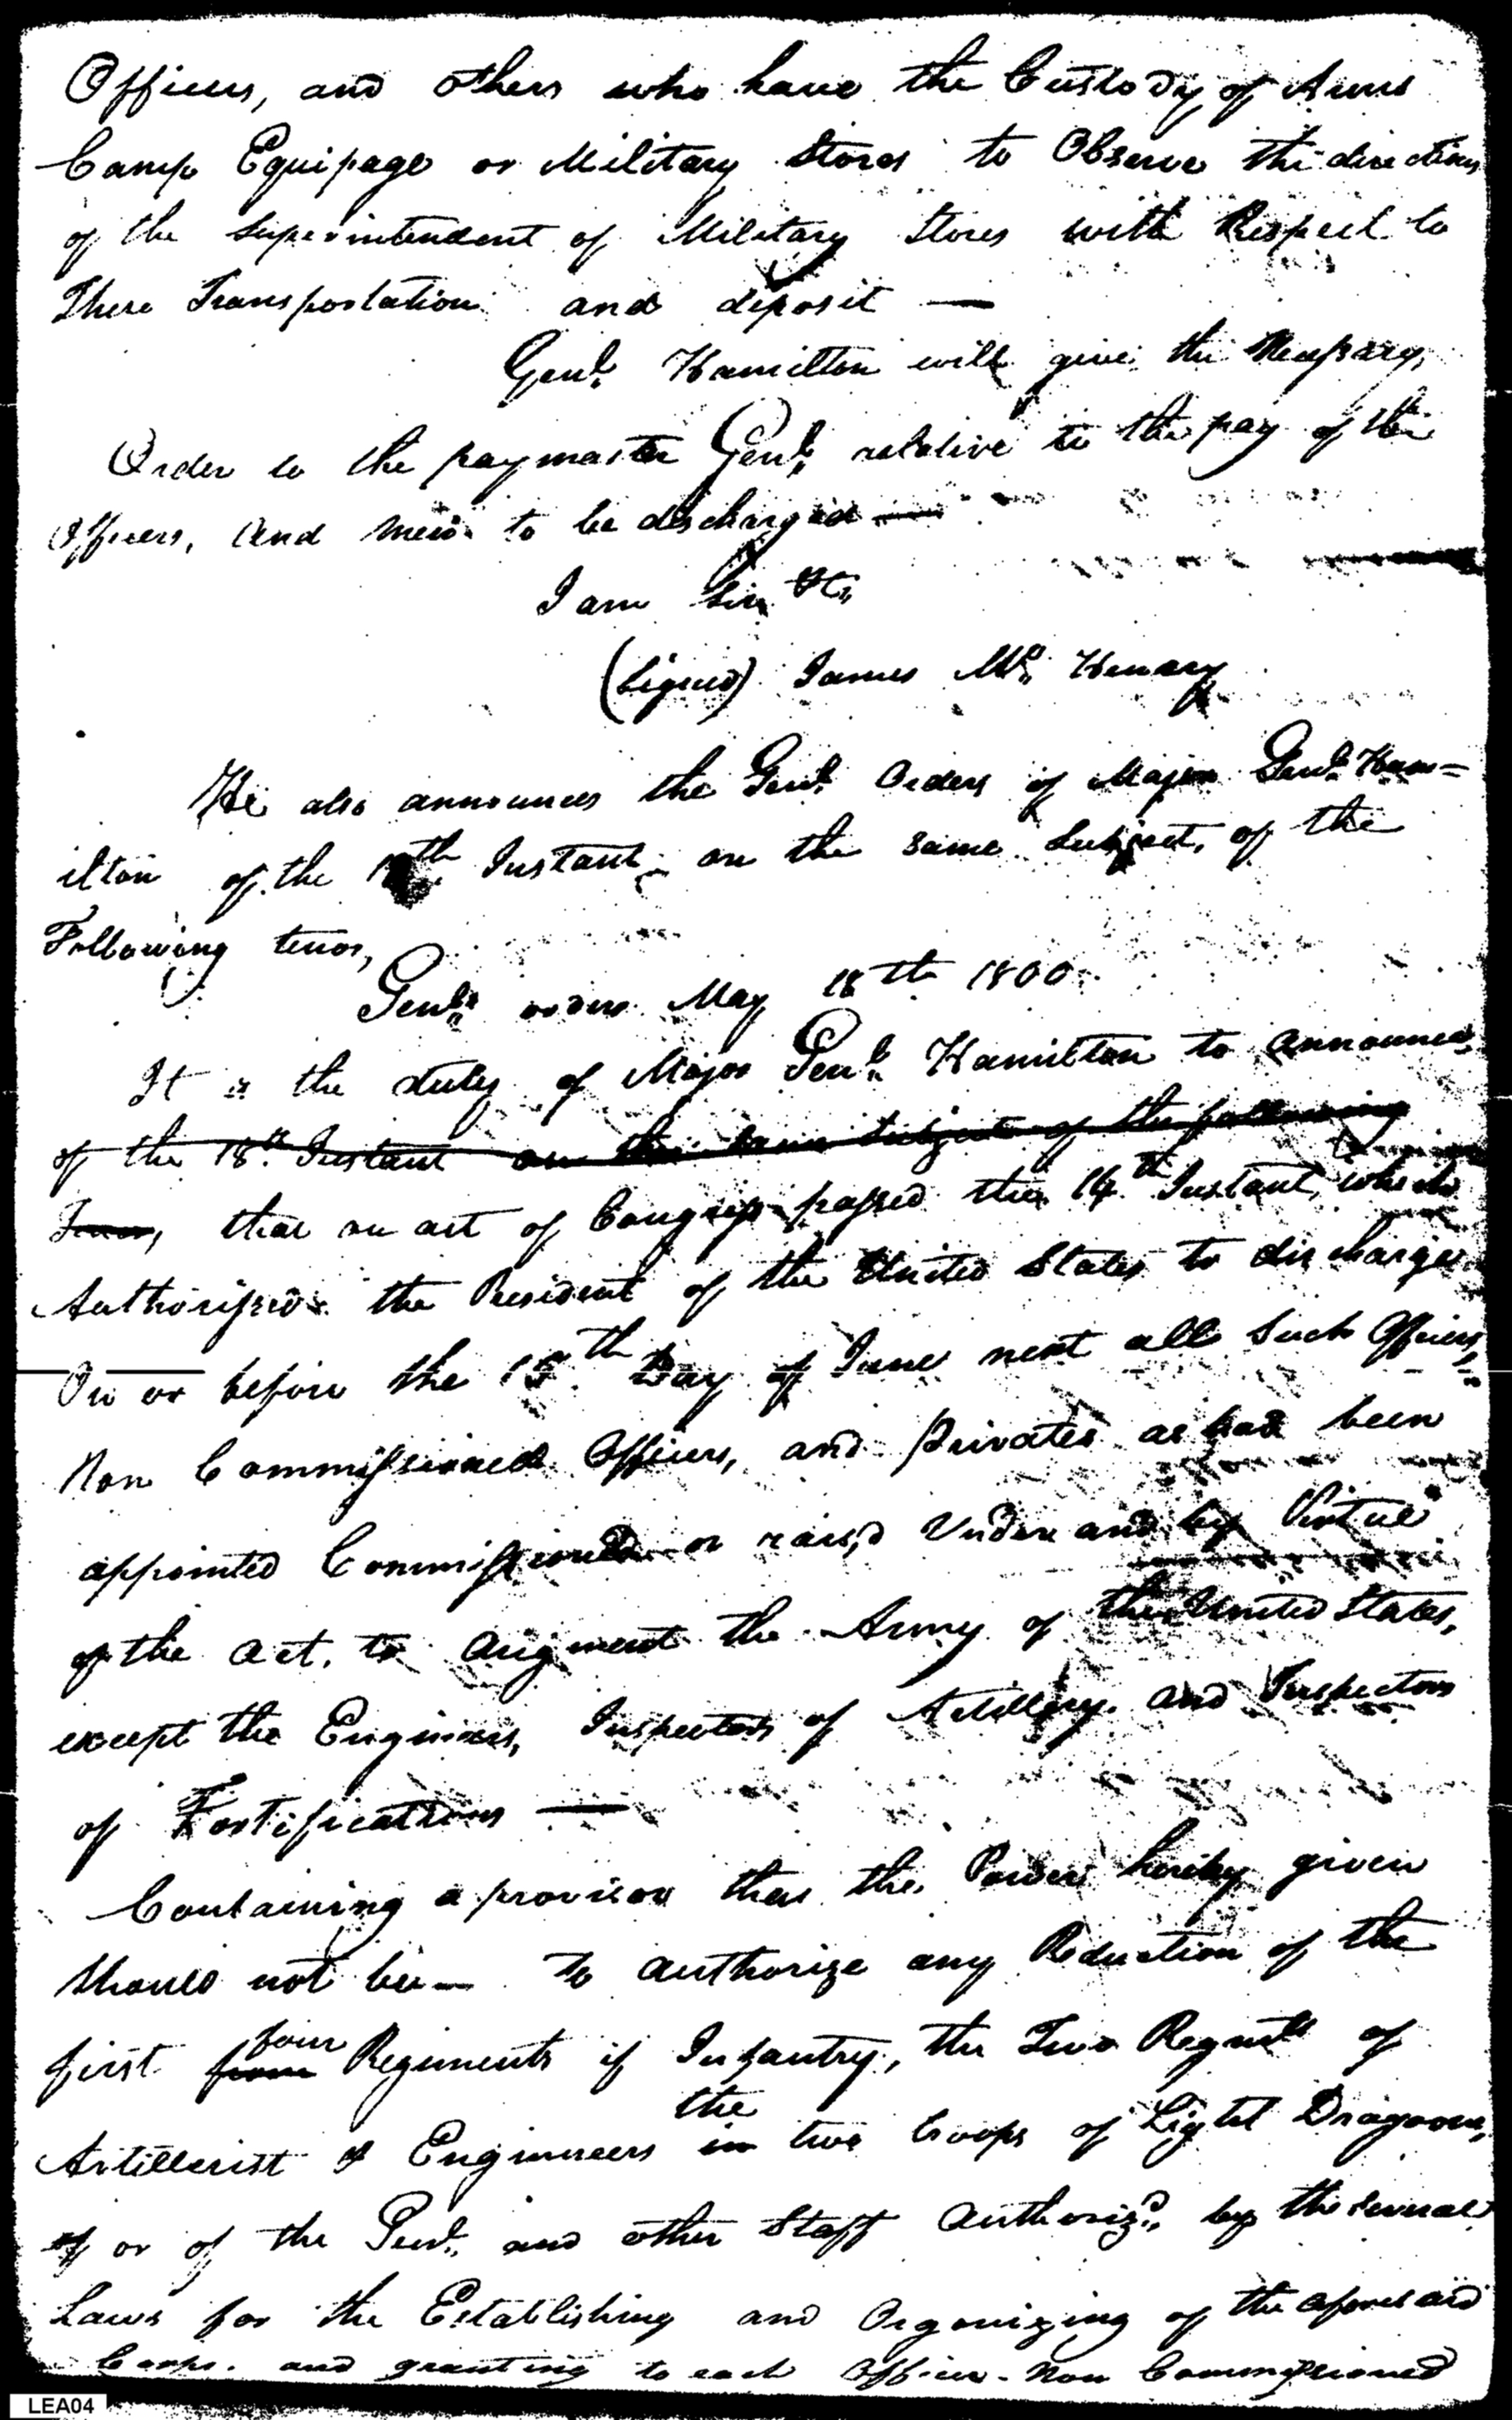 Officers, and others who have the Custody of Arms
Camp Equipage or Military Stores to Observe the directions
of the Superintendent of Military Stores with Respect to
There Transportation and deposit —
Genl. Hamilton will give the Necessary
Order to the paymaster Genl. relative to the pay of the
Officers, and men to be discharged —
I am Sir &c.
(Signed) James Mc. Henary
He also announces the Genl. Orders of Major Genl. Ham=
ilton of the 18th Instant on the same Subject, of the
Following tenor,
Genls. orders May 18th 1800
It is the duty of Major Genl. Hamilton to announce
of the 18th Instant on the same Subject of the following
Tenor, that an act of Congress passed the 14th Instant, which
Authorissed the President of the United States to discharge
On or before the 15th Day of June next all Such Officers,
Non Commissioned Officers, and Privates as had been
appointed Commissioned or rais,d Under and by Virtue
of the act, to augment the Army of the United States,
except the Engineers, Inspectors of Artillery and Inspectors
of Fortifications —
Containing a provison that the Power hereby given
Should not be — to authorize any Reduction of the
first from four Regiments of Infantry, the Two Regmts of
Artillerist & Engineers in the two troops of Light Dragoons,
of or of the Genl. and other Staff authoriz'd, by the several
Laws for the Establishing and Organizing of the aforesaid
Corps. and granting to each Officer - Non Commissioned
LEA04